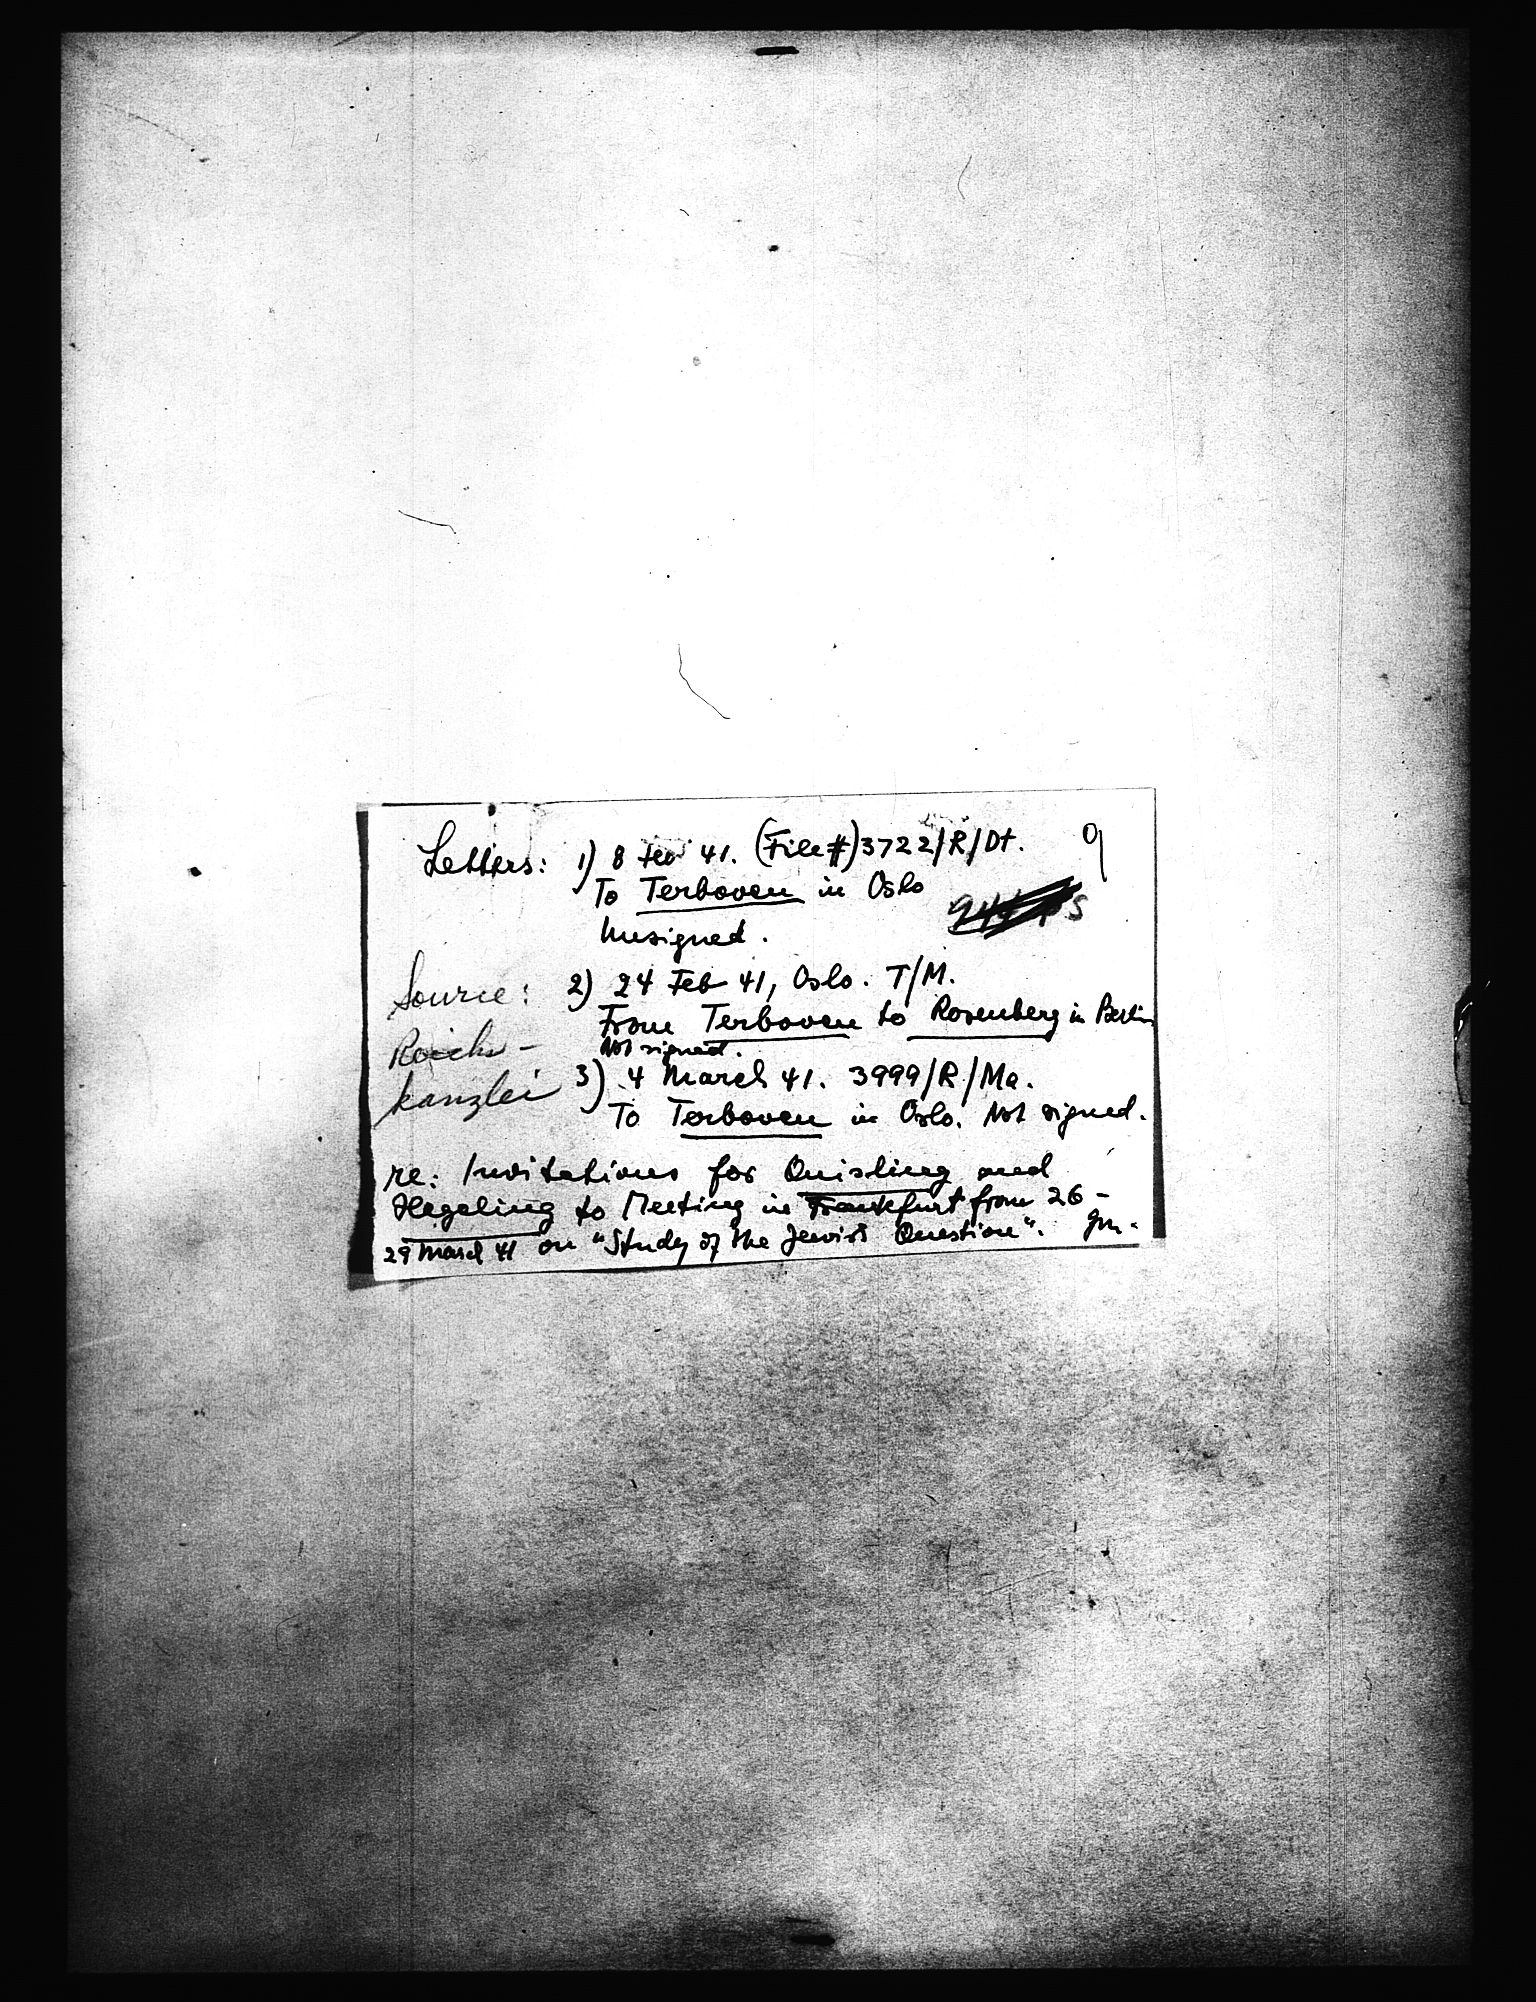 Letters: 1) 8 Feb 41. (File #) 3722/R/Dt. 9
To Terboven in Oslo
Unsigned.
Source: 2) 24 Feb 41, Oslo. T/M.
From Terboven to Rosenberg in Berlin
Not signed.
Reichs-
kanzlei 3) 4 March 41. 3999/R/Ma.
To Terboven in Oslo. Not signed.
re: Invitations for Quisling and
Hagelin to Meeting in Frankfurt from 26 -
29 March 41 on "Study of the Jewish Question". gm.